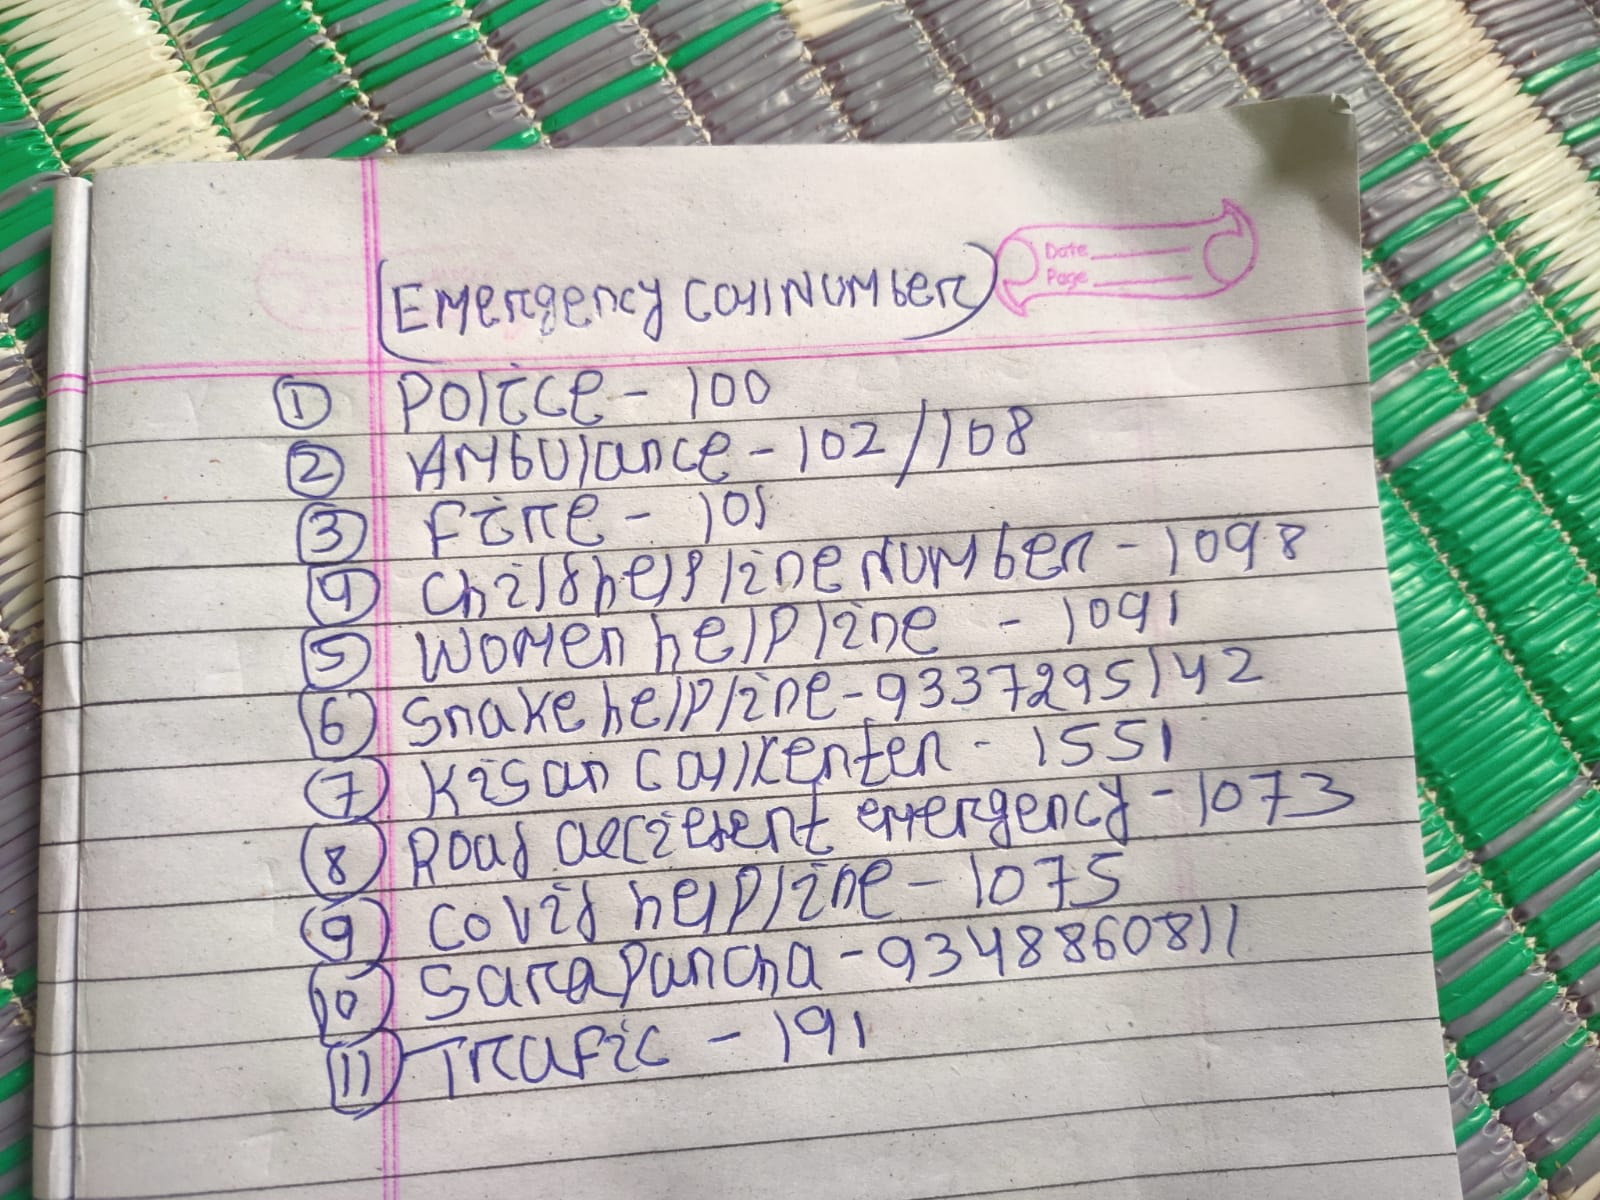 (Emergency Call Number)
Date
Page
① Police - 100
② Ambulance - 102/108
③ Fire - 101
④ Child help line number - 1098
⑤ Women help line - 1091
⑥ Snake help line - 9337295142
⑦ Kisan Call Kenter - 1551
⑧ Road accident emergency - 1073
⑨ Covid help line - 1075
⑩ Sarapancha -9348860811
⑪ Trafic - 191